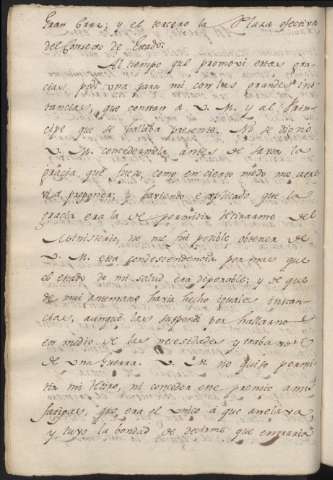 Gran Cruz; y el tercero la Plaza efectiva
del Consejo de Estado.
Al tiempo que promoví estas gra-
cias, pedí una para mí con las grandes ins-
tancias, que constan a V. M. y al Prin-
cipe que se hallaba presente. No se dignó
V. M. concedermela antes de saber la
gracia que fuese, como en cierto modo me atre-
ví a proponer; y haviendo explicado que la
gracia era la de permitir retirarme del
Ministerio, no me fué posible obtener de
V. M. esta condescendencia por mas que
el estado de mi salud era deporable; y de que
de muy antemano havia hecho iguales instan-
cias, aunque las suspendí por hallarme
en medio de las necesidades y trabajos
de una Guerra. V. M. no quiso permi-
tir mi retiro, ni conceder este premio a mis
fatigas, que era el unico á que anelava,
y tuvo la bondad de decirme que